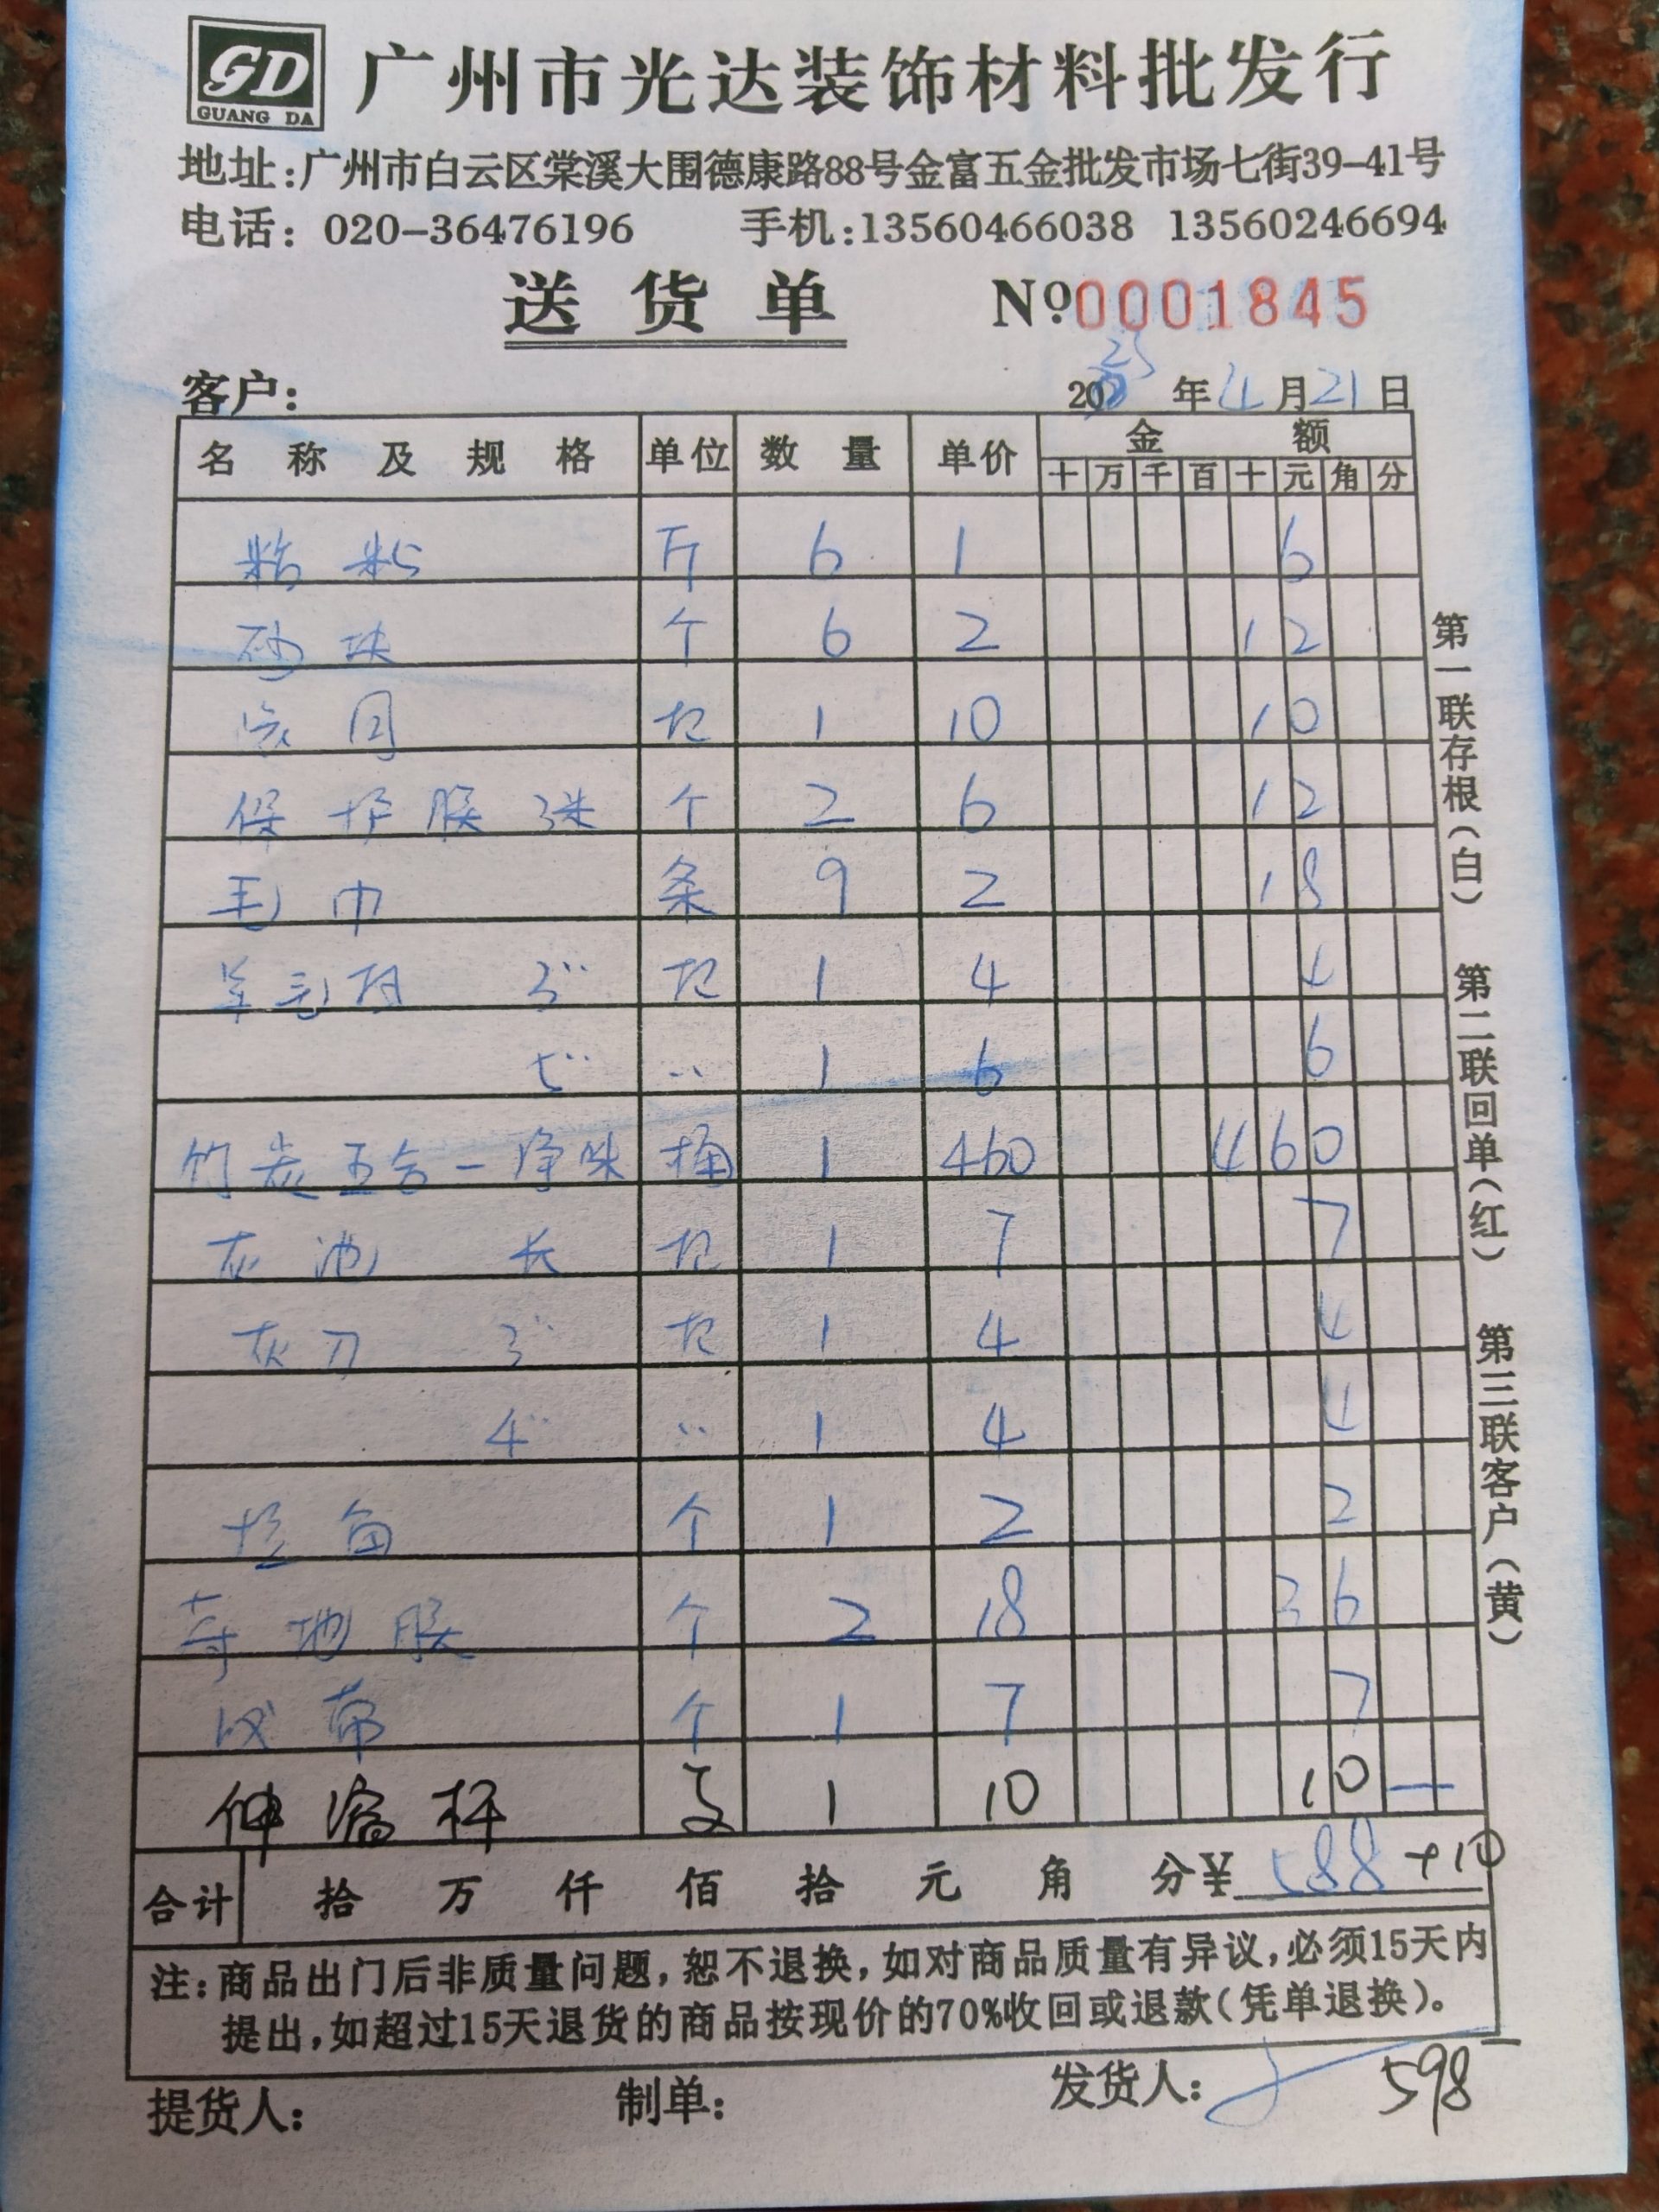 GD
GUANG DA
广州市光达装饰材料批发行
地址:广州市白云区棠溪大围德康路88号金富五金批发市场七街39-41号
电话: 020-36476196 手机:13560466038 13560246694
送货单 Nº0001845
客户: 2023年4月21日
名称及规格 单位 数量 单价 金额
十 万 千 百 十 元 角 分
粘粉 斤 6 1 6
砂块 个 6 2 12
滚同 把 1 10 10
保护膜 3米 个 2 6 12
毛巾 条 9 2 18
羊毛扫 3" 把 1 4 4
5" " 1 6 6
竹炭五合一净味 桶 1 460 460
灰池 长 把 1 7 7
灰刀 3" 把 1 4 4
4" " 1 4 4
个 1 2 2
地膜 个 2 18 36
带 个 1 7 7
伸缩杆 支 1 10 10
合计 拾 万 仟 佰 拾 元 角 分¥ 588 +10
注:商品出门后非质量问题,恕不退换,如对商品质量有异议,必须15天内
提出,如超过15天退货的商品按现价的70%收回或退款(凭单退换)。
提货人: 制单: 发货人: 598
第一联存根(白) 第二联回单(红) 第三联客户(黄)